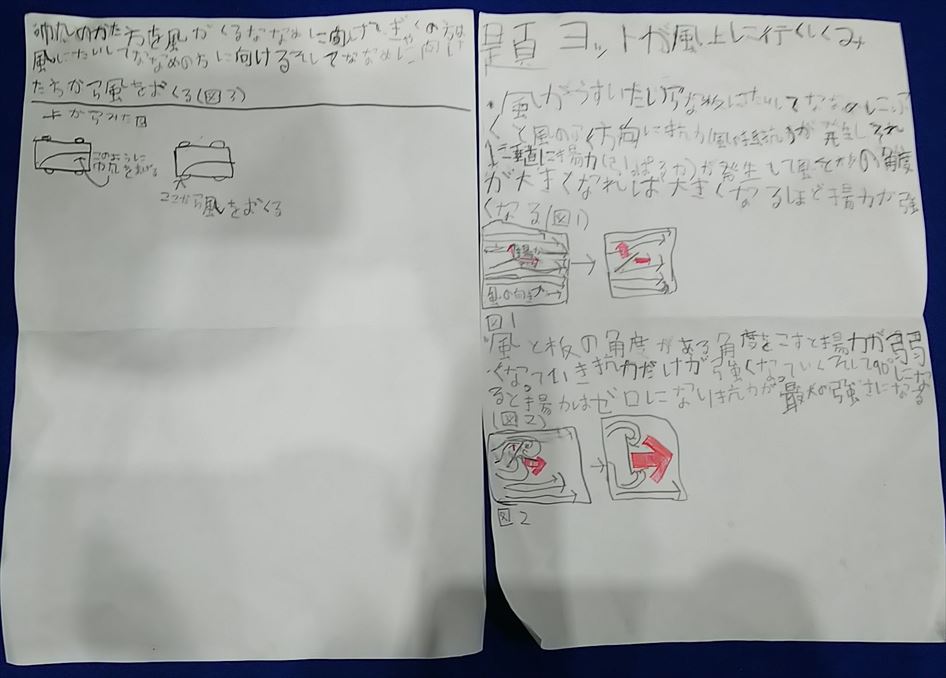 題 ヨットが風上に行くしくみ
・風がうすいたいらな板にたいしてななめにふ
くと風のふく方向に抗力(風の抵抗力)が発生しそれ
に垂直に揚力(ひっぱる力)が発生して風と板の角度
が大きくなれば大きくなるほど揚力が強
くなる(図1)
揚力
風の向き
図1
風と板の角度がある角度をこすと揚力が弱
くなっていき抗力だけが強くなっていくそして90°にな
ると揚力はゼロになり抗力が最大の強さになる
(図2)
図2
帆のかた方を風がくるななめに向けぎゃくの方は
風にたいしてななめの方に向けるそしてななめに向け
たらから風をおくる(図3)
上からみた図
このように
帆をまげる
ここから風をおくる